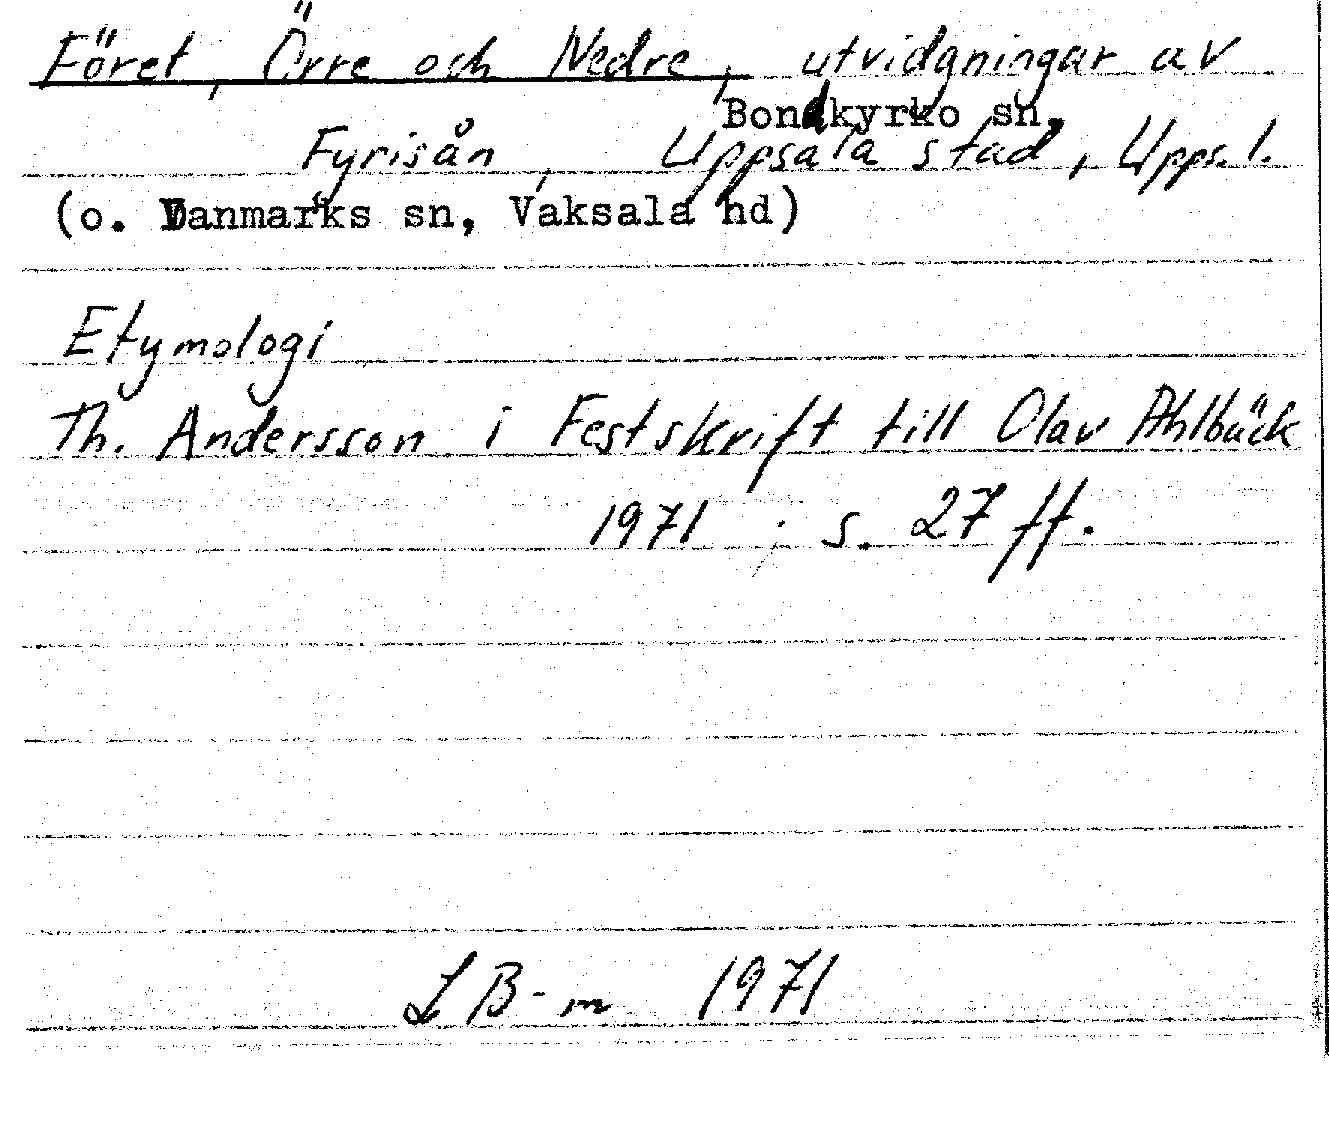 Föret, Örre och Nedre, utvidgningar av
Bondkyrko sn,
Fyrisån, Uppsala stad, Upps. l.
(o. Danmarks sn, Vaksala hd)
Etymologi
Th. Andersson i Festskrift till Olav Ahlbäck
1971 s. 27 ff.
L B-m 1971